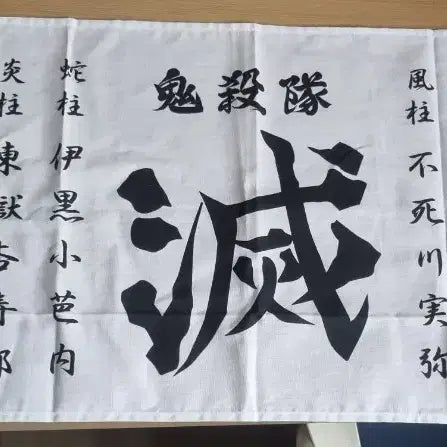 鬼殺隊
滅
風柱 不死川実弥
蛇柱 伊黒小芭内
炎柱 煉獄杏寿郎